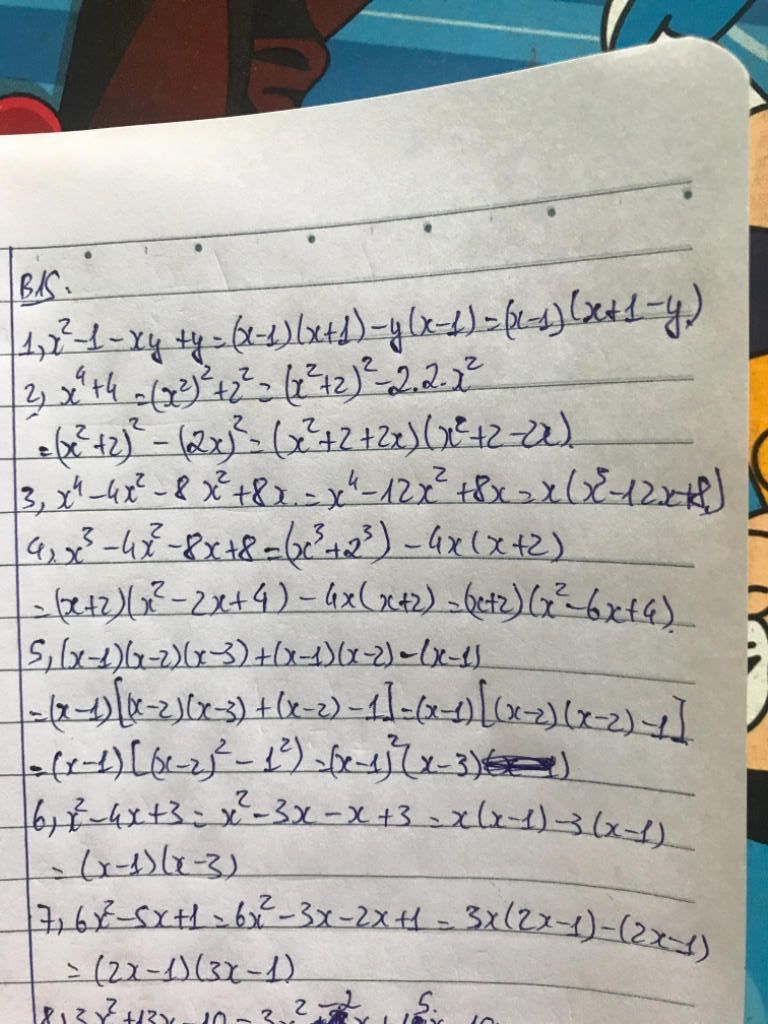 B15.
1, x² - 1 - xy + y = (x-1)(x+1) - y(x-1) = (x-1)(x+1-y)
2, x⁴+4 = (x²)² + 2² = (x²+2)² - 2.2.x²
= (x²+2)² - (2x)² = (x²+2+2x)(x²+2-2x).
3, x⁴ - 4x² - 8x² + 8x = x⁴ - 12x² + 8x = x(x³ - 12x + 8)
4, x³ - 4x² - 8x + 8 = (x³+2³) - 4x(x+2)
= (x+2)(x² - 2x + 4) - 4x(x+2) = (x+2)(x² - 6x + 4).
5, (x-1)(x-2)(x-3) + (x-1)(x-2) - (x-1)
= (x-1)[(x-2)(x-3) + (x-2) - 1] = (x-1)[(x-2)(x-2) - 1]
= (x-1)[(x-2)² - 1²) = (x-1)²(x-3)
6, x² - 4x + 3 = x² - 3x - x + 3 = x(x-1) - 3(x-1)
= (x-1)(x-3)
7, 6x² - 5x + 1 = 6x² - 3x - 2x + 1 = 3x(2x-1) - (2x-1)
= (2x-1)(3x-1)
8, 3x² + 13x - 10 = 3x² - 2x + 15x - 10